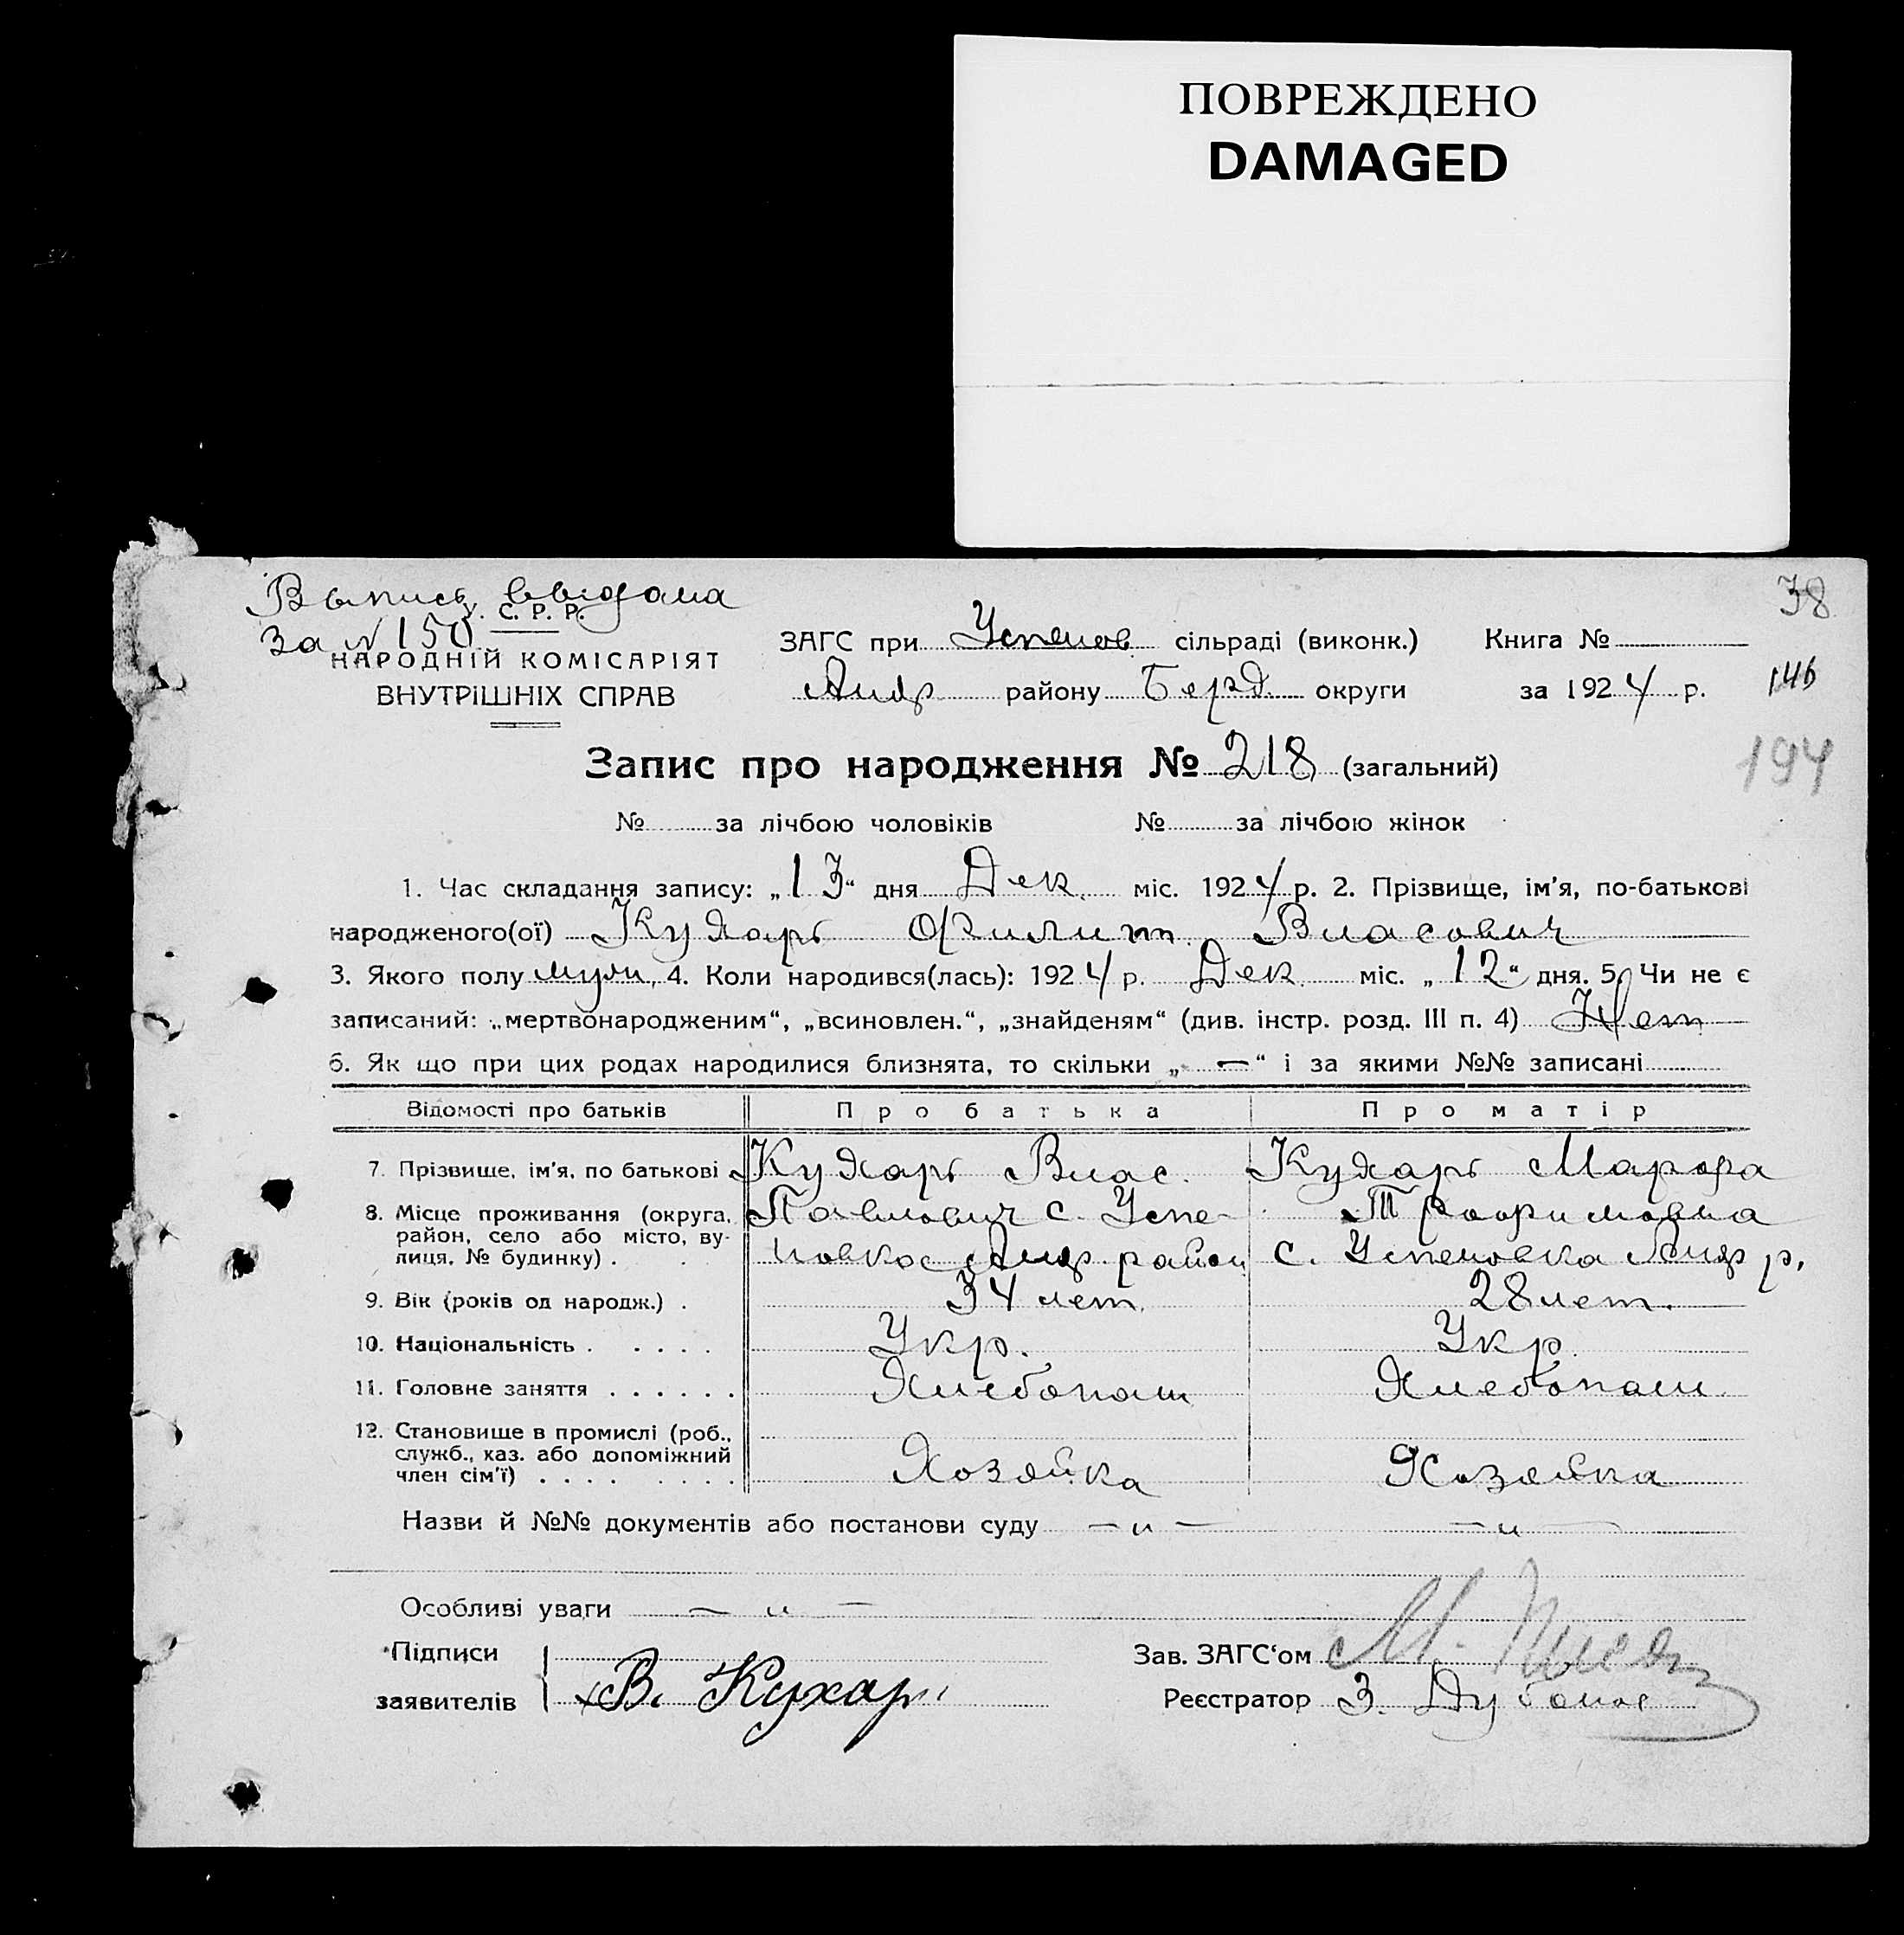 ПОВРЕЖДЕНО
DAMAGED
38
Выпись выдана
за № 150
У. С. Р. Р.
НАРОДНІЙ КОМІСАРІЯТ
ВНУТРІШНІХ СПРАВ
ЗАГС при Успенов сільраді (виконк.) Книга №
району Берд. округи за 1924 р.
146
Запис про народження № 218 (загальний)
194
№ за лічбою чоловіків № за лічбою жінок
1. Час складання запису: „13“ дня Дек. міс. 1924 р. 2. Прізвище, ім'я, по-батькові
народженого(ої) Кухарь Филип Власович
3. Якого полу муж, 4. Коли народився(лась): 1924 р. Дек. міс. „12“ дня. 5. Чи не є
записаний: „мертвонародженим“, „всиновлен.“, „знайденям“ (див. інстр. розд. III п. 4) Нет
6. Як що при цих родах народилися близнята, то скільки „—“ і за якими №№ записані
Відомості про батьків Про батька Про матір
7. Прізвище, ім'я, по батькові Кухарь Влас. Кухарь Марфа
8. Місце проживання (округа, район, село або місто, вулиця, № будинку) . Павлович с. Успе-
новкое район
Трофимовна
с. Успеновка р.
9. Вік (років од народж.) . 34 лет. 28 лет.
10. Національність . . . . . Укр. Укр.
11. Головне заняття . . . . . . Хлебопаш Хлебопаш
12. Становище в промислі (роб., служб., хаз. або допоміжний член сім'ї) . . . . . . . . Хозяйка Хозяйка
Назви й №№ документів або постанови суду — „ — — „ —
Особливі уваги — „ —
Підписи
заявителів В. Кухарь
Зав. ЗАГС‘ом М.
Реєстратор З.